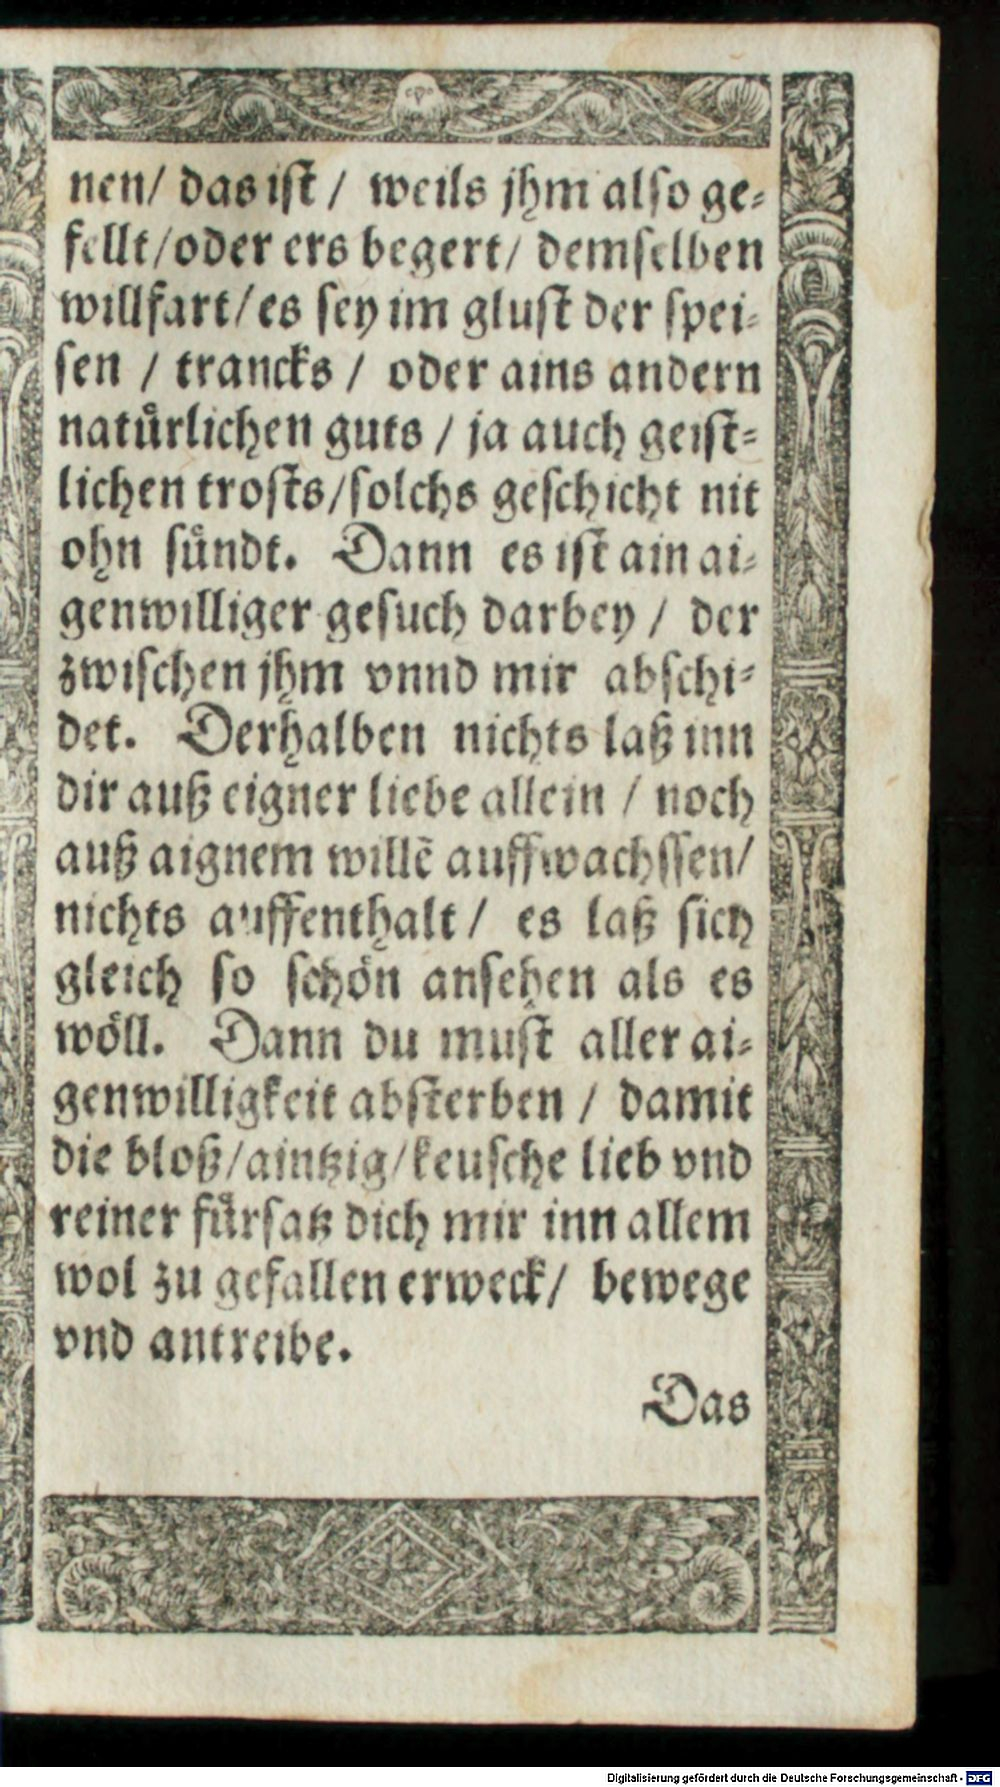 nen/ das iſt / weils jhm alſo ge⸗
fellt/oder ers begert/ demſelben
willfart/es ſey im gluſt der ſpei⸗
ſen / trancks / oder ains andern
natuͤrlichen guts / ja auch geiſt⸗
lichen troſts/ſolchs geſchicht nit
ohn ſuͤndt. Dann es iſt ain ai⸗
genwilliger geſuch darbey / der
zwiſchen jhm vnnd mir abſchi⸗
det. Derhalben nichts laß inn
dir auß eigner liebe allein / noch
auß aignem willẽ auffwachſſen/
nichts auffenthalt / es laß ſich
gleich ſo ſchoͤn anſehen als es
woͤll. Dann du muſt aller ai⸗
genwilligkeit abſterben / damit
die bloß/aintzig/keuſche lieb vnd
reiner fuͤrſatz dich mir inn allem
wol zu gefallen erweck/ bewege
vnd antreibe.
Das
Digitalisierung gefördert durch die Deutsche Forschungsgemeinschaft - DFG